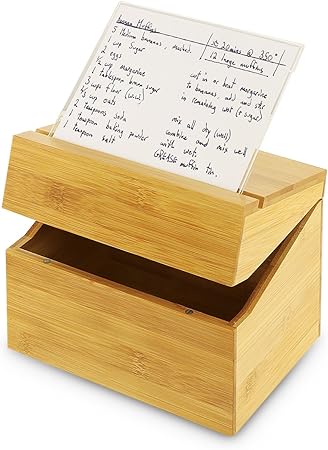 Banana Muffins
350 20 mins @ 350°
12 large muffins
3 medium bananas, mashed.
2 eggs
1 cup sugar
1/2 cup margarine
1 tablespoon brown sugar
3 cups flour (w.w.)
1/3 cup oats
2 teaspoons soda
1 teaspoon baking powder
1 teaspoon salt
melt or beat margarine
to bananas, add and stir
in remaining wet (+ sugar)
mix all dry (well)
combine and mix well
until wet.
GREASE muffin tin.